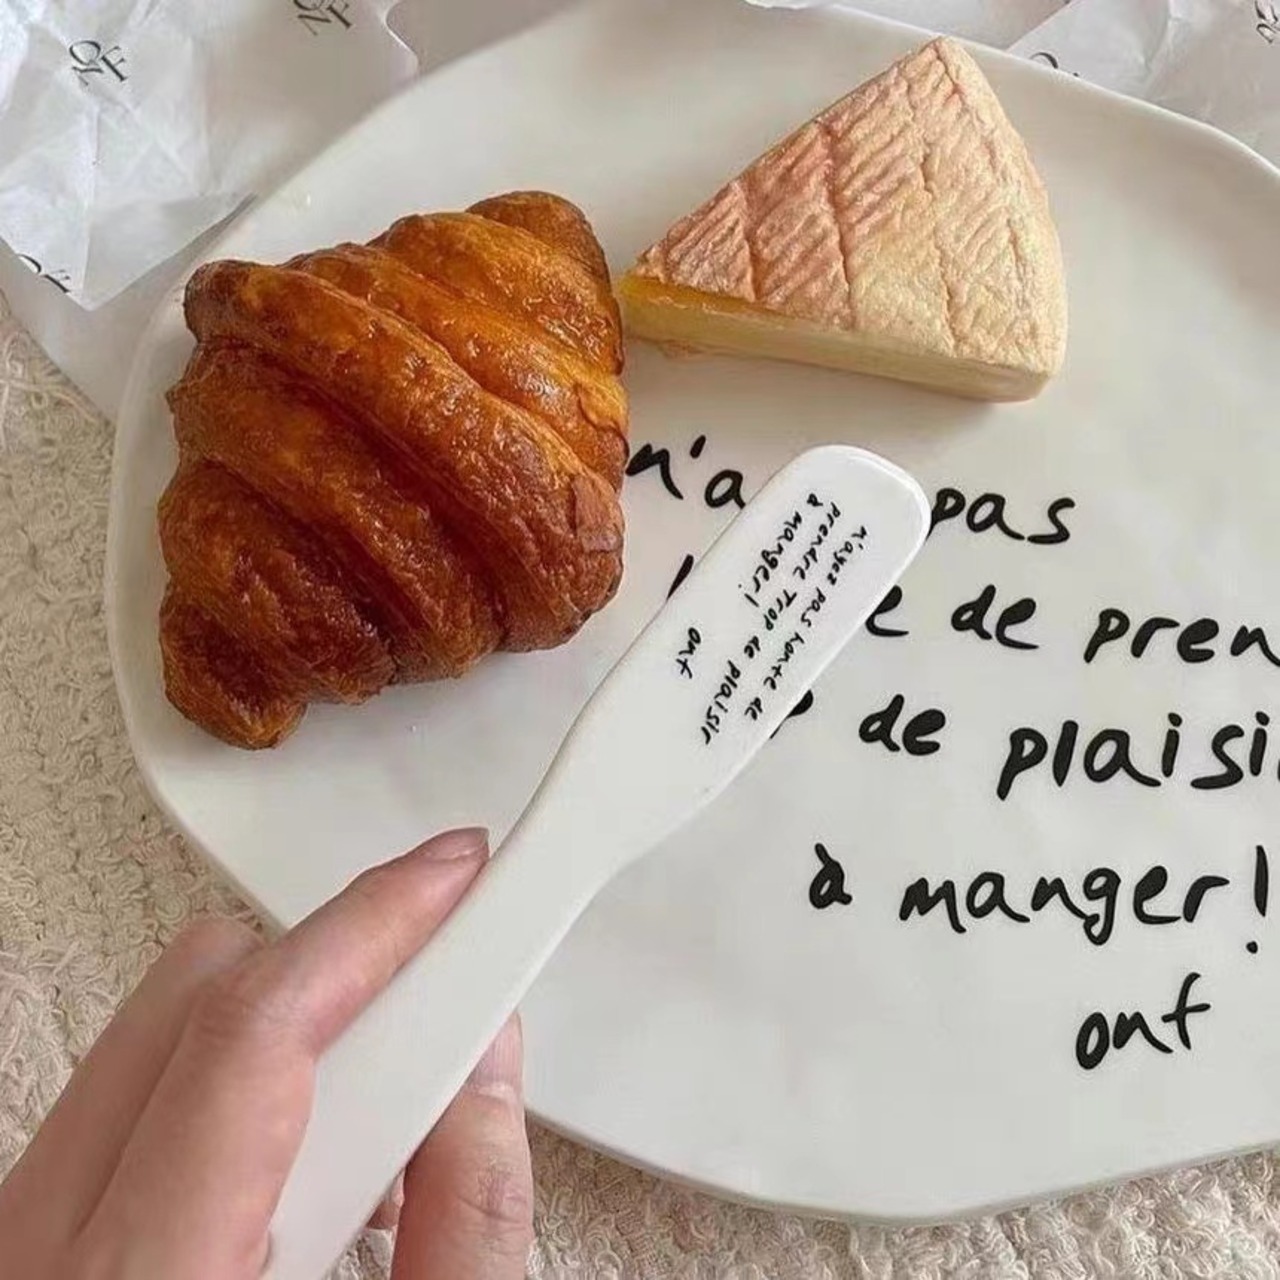 n'a pas
e de pren
de plaisi
à manger!
ont
n'ayez pas honte de
prendre Trop de plaisir
à manger!
ont